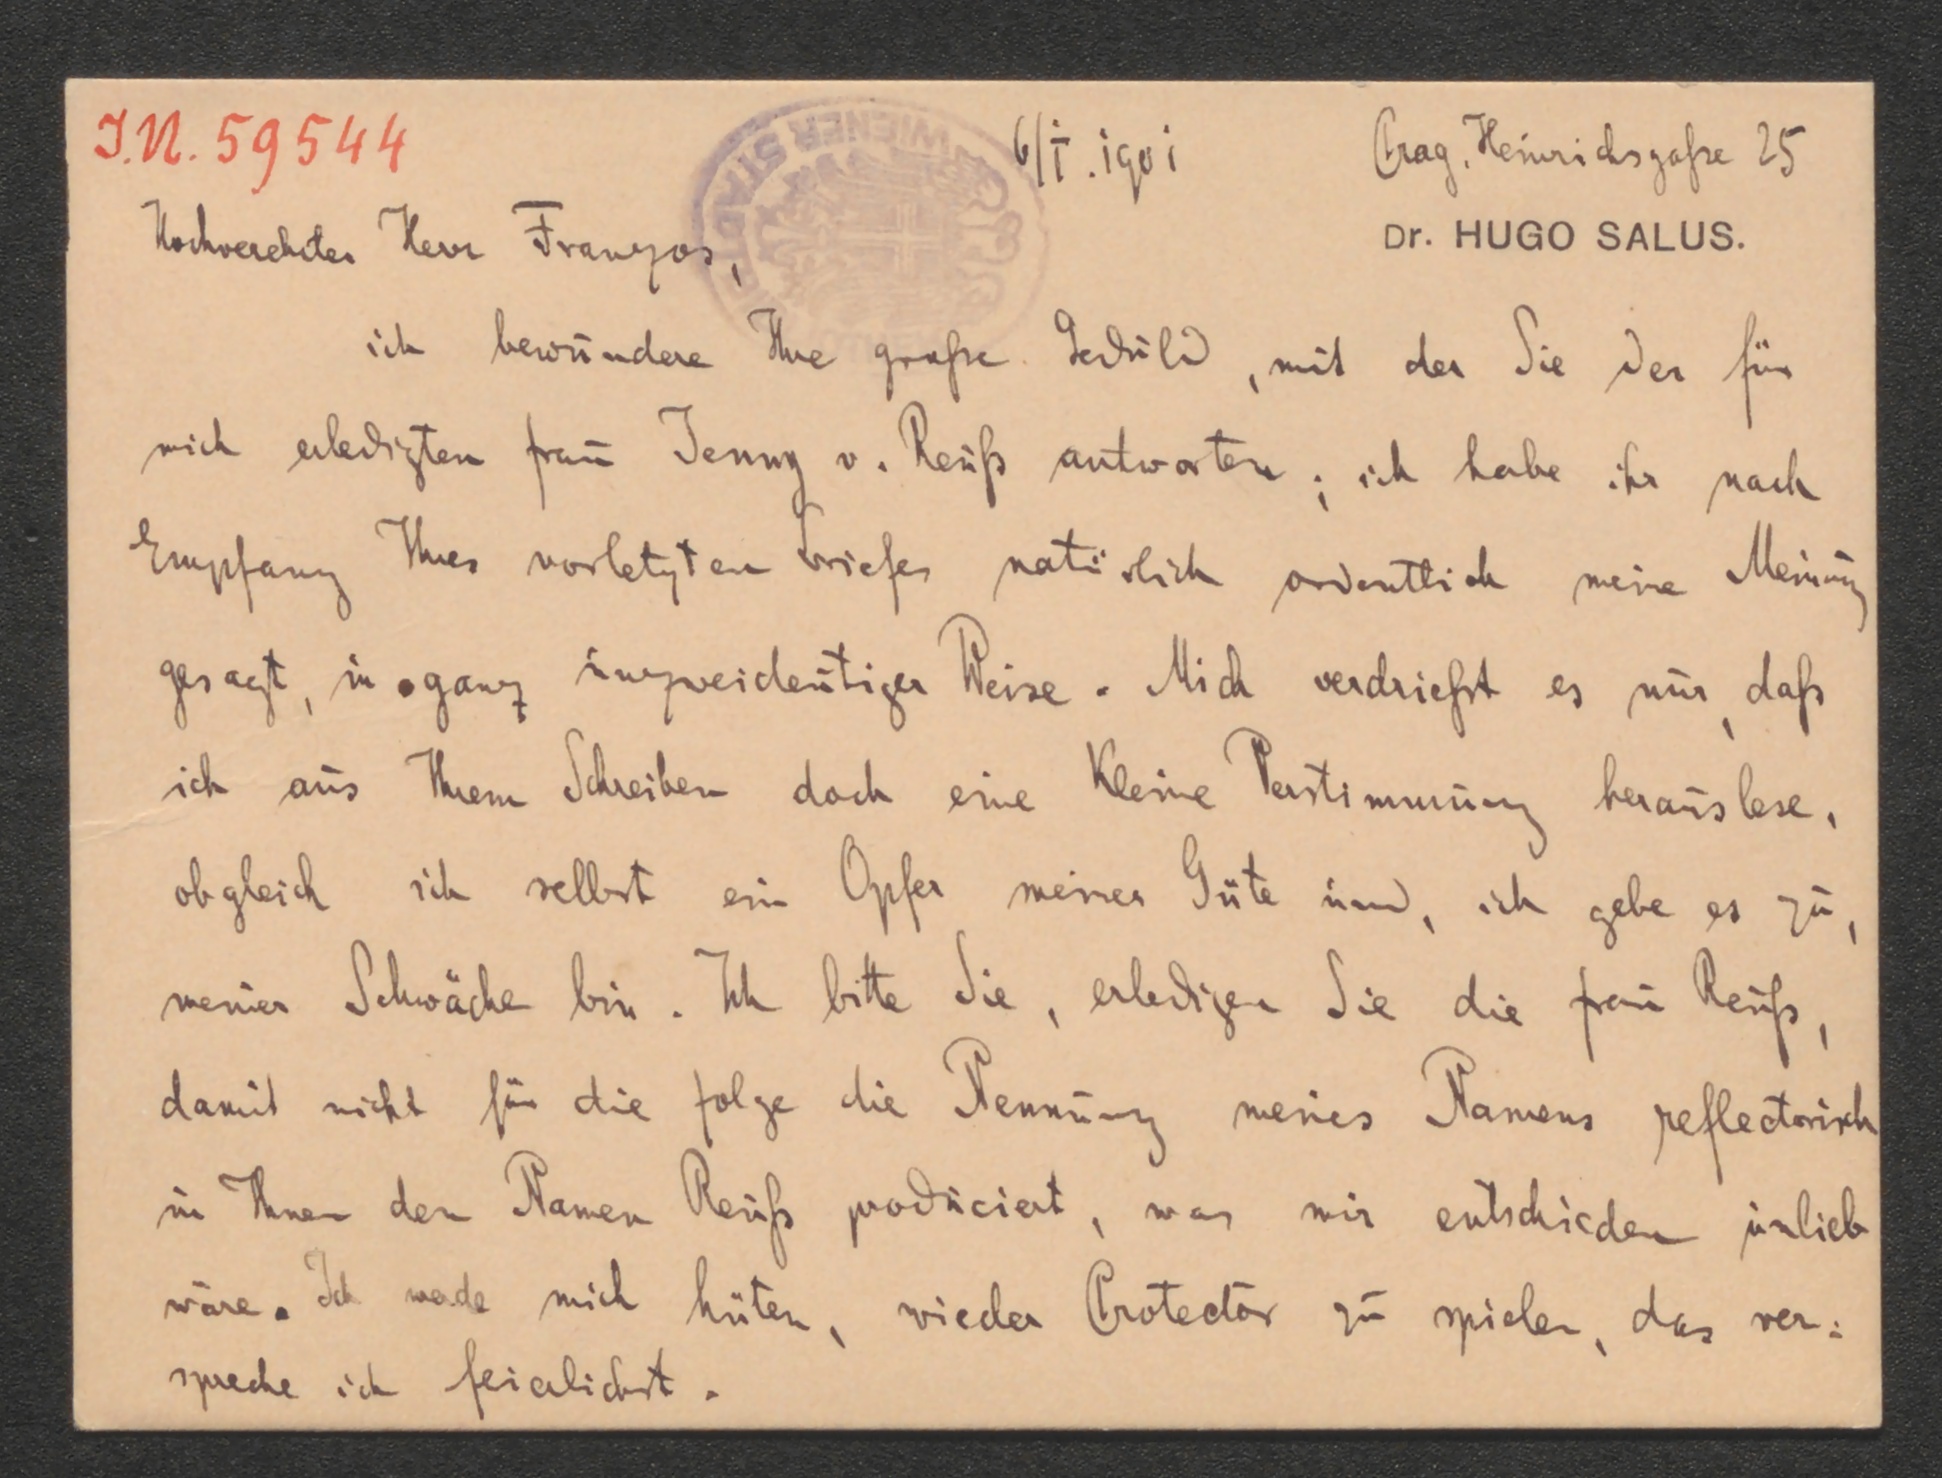 J.N. 59544
WIENER STADT
6/I. 1901
Prag, Heinrichsgaße 25
Dr. HUGO SALUS.
Hochverehrter Herr Franzos,
ich bewundere Ihre große Geduld, mit der Sie der für
mich erledigten Frau Jenny v. Reuß antworten; ich habe ihr nach
Empfang Ihres vorletzten Briefes natürlich ordentlich meine Meinung
gesagt, in ganz unzweideutiger Weise. Mich verdrießt es nur, daß
ich aus Ihrem Schreiben doch eine kleine Verstimmung herauslese,
obgleich ich selbst ein Opfer meiner Güte und, ich gebe es zu,
meiner Schwäche bin. Ich bitte Sie, erledigen Sie die Frau Reuß,
damit nicht für die Folge die Nennung meines Namens reflectorisch
in Ihnen den Namen Reuß produciert, was mir entschieden unlieb
wäre. Ich werde mich hüten, wieder Protector zu spielen, das ver:
spreche ich feierlichst.